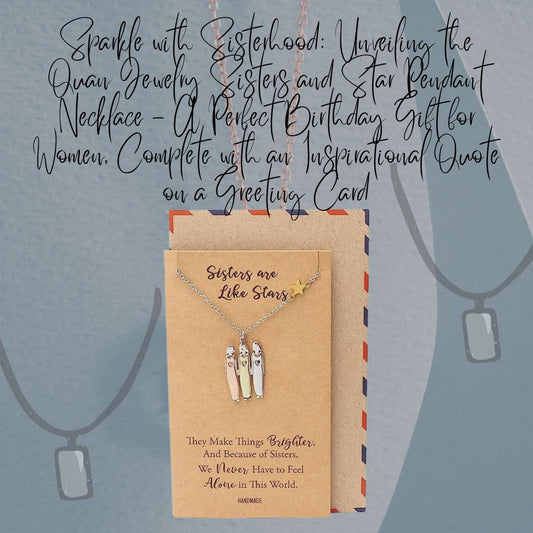 Sparkle with Sisterhood: Unveiling the
Quan Jewelry Sisters and Star Pendant
Necklace - A Perfect Birthday Gift for
Women, Complete with an Inspirational Quote
on a Greeting Card
Sisters are
Like Stars
They Make Things Brighter,
And Because of Sisters,
We Never Have to Feel
Alone in This World.
HANDMADE